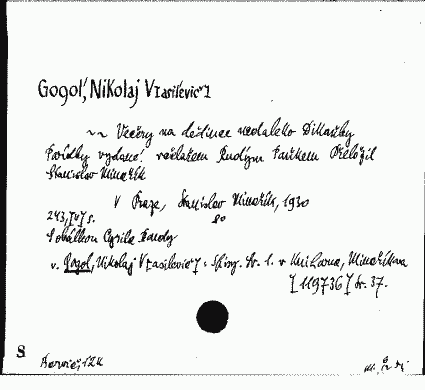 Gogol', Nikolaj V[asil'evič]
~~ Večery na dědince nedaleko Dikaňky
Povídky vydané včelařem Rudým Paňkem Přeložil
Stanislav Minařík
V Praze, Stanislav Minařík, 1930
8°
243,[V] s.
S obálkou Cyrila Boudy
v. Gogol, Nikolaj V[asilevič]: Spisy. Sv. 1. v Knihovna, Minaříkova
[119736] sv. 37.
8